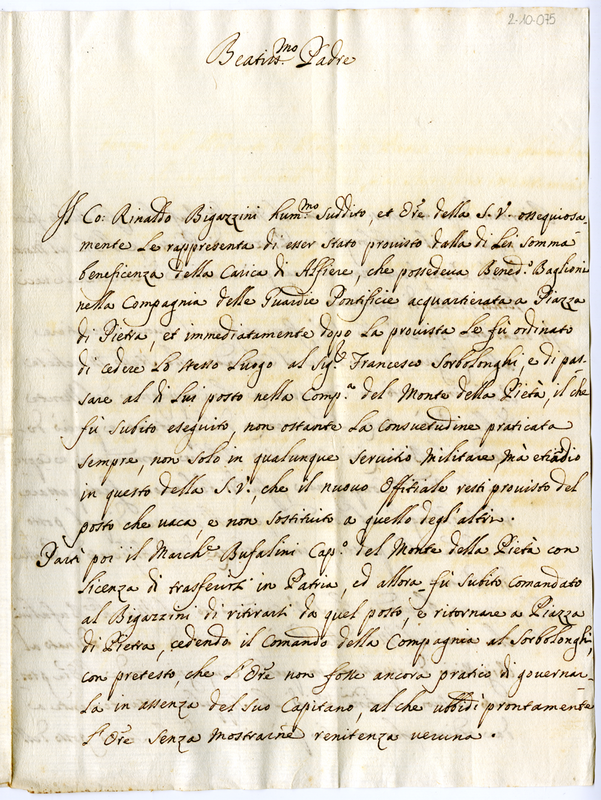 2-10-075
Beatiss.mo Padre
Il Co: Rinaldo Bigazzini hum.mo Suddito, et Ore della S.V. ossequiosa-
mente Le rappresenta di esser stato provisto dalla di Lei somma
beneficenza della Carica di Alfiere, che possedeva Bened.o Baglioni
nella Compagnia delle Guardie Pontificie acquartierata a Piazza
di Pietra, et immediatamente dopo La provista Le fù ordinato
di cedere Lo stesso Luogo al Sig.r Francesco Sorbolonghi, e di pas-
sare al di Lui posto nella Comp.a del Monte della Pietà, il che
fù subito eseguito, non ostante La consuetudine praticata
sempre, non solo in qualunque servitio militare, mà etiãdio
in questo della S.V., che il nuovo Offitiale resti provisto del
posto che vaca, e non sostituito a quello degl'altri.
Partì poi il March.e Bufalini Cap.o del Monte della Pietà con
licenza di trasferirsi in Patria, ed allora fù subito comandato
al Bigazzini di ritirarsi da quel posto, e ritornare a Piazza
di Pietra, cedendo il Comando della Compagnia al Sorbolonghi,
con pretesto, che l'Ore non fosse ancora pratico di governar-
La in assenza del suo Capitano, al che ubbidì prontamente
l'Ore senza mostrarne renitenza veruna.